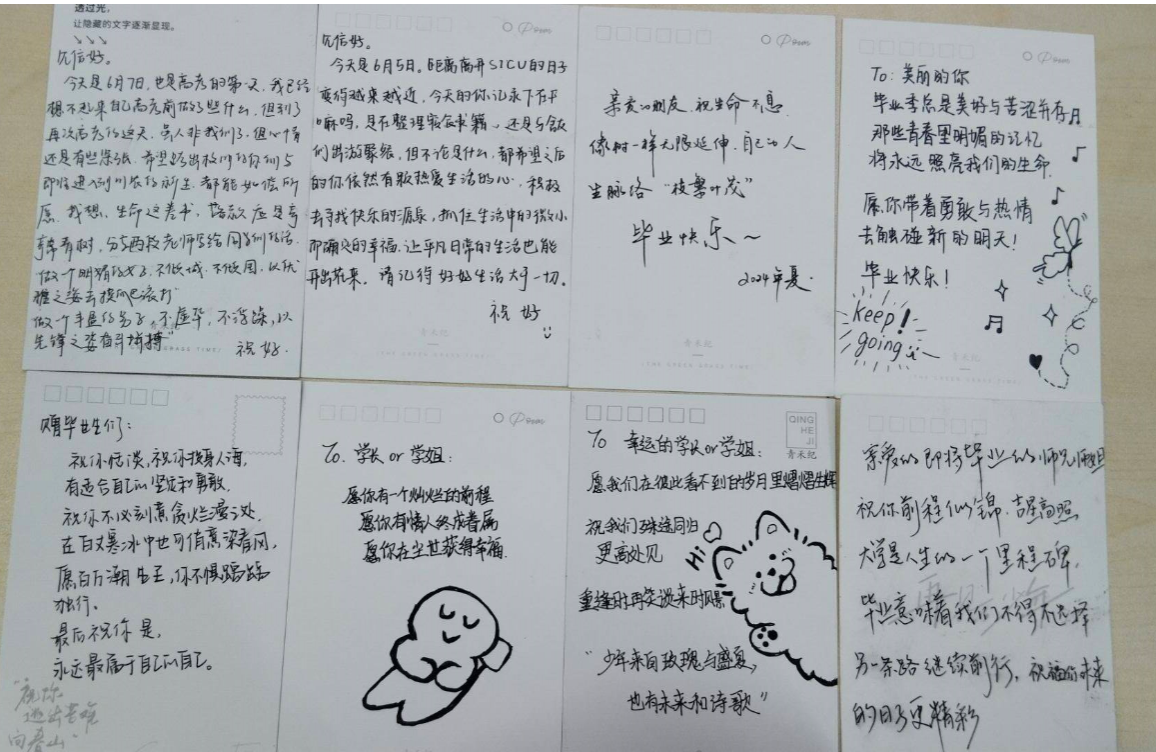 透过光，
让隐藏的文字逐渐显现。
↘↘↘
见信好。
今天是6月7日,也是高考的第一天,我已经
想不起来自己高考前做了些什么,但到了
再次高考的这天,虽人非我们了,但心情
还是有些紧张,希望踏出校门的你们与
即将进入到川农的新生,都能如偿所
愿。我想,生命这卷书,落款应是亭
亭青树,分享两段老师写给同学们的话
做一个明媚的女子,不倾城,不倾国,以优
雅之姿去摸爬滚打
做一个丰盈的男子,不虚华,不浮躁,以
先锋之姿奋斗拼搏"
祝好.
Poem
见信好。
今天是6月5日。距离离开SICU的日子
变得越来越近,今天的你记录下在干
嘛吗,是在整理寝室书籍,还是与舍友
们出游聚餐,但不论是什么,都希望之后
的你依然有敢热爱生活的心,积极
去寻找快乐的源泉,抓住生活中的微小
而确定的幸福,让平凡日常的生活也能
开出花来,请记得好好生活大于一切。
祝好
青禾纪
Poem
亲爱的朋友,祝生命不息
像树一样无限延伸,自己的人
生脉络"枝繁叶茂"
毕业快乐~
2024年夏.
青禾纪
Poem
To: 美丽的你
毕业季总是美好与苦涩并存
那些青春里明媚的记忆
将永远照亮我们的生命.
愿你带着勇敢与热情
去触碰新的明天!
毕业快乐!
keep!
going
青禾纪
致毕业生们:
祝你恬淡,祝你热身人海,
有适合自己的坚定和勇敢.
祝你不必刻意贪烂漫之处,
在百丈寒冰中也可借意染春风,
愿百万潮生至,你不惧踽踽
独行。
最后祝你是,
永远最属于自己的自己。
"祝你
逃出苦难
向春山"
Poem
To. 学长or学姐:
愿你有一个灿烂的前程
愿你有情人终成眷属
愿你在尘世获得幸福.
QING
HE
JI
青禾纪
To 幸运的学长or学姐:
愿我们在彼此看不到的岁月里熠熠生辉
祝我们殊途同归
更高处见
Hi
重逢时再笑谈来时风景
"少年来自玫瑰与盛夏,
也有未来和诗歌"
亲爱的即将毕业的师兄师姐
祝你前程似锦.吉星高照.
大学是人生的一个里程碑,
毕业意味着我们不得不选择
另一条路继续前行,祝福你未来
的日子更精彩